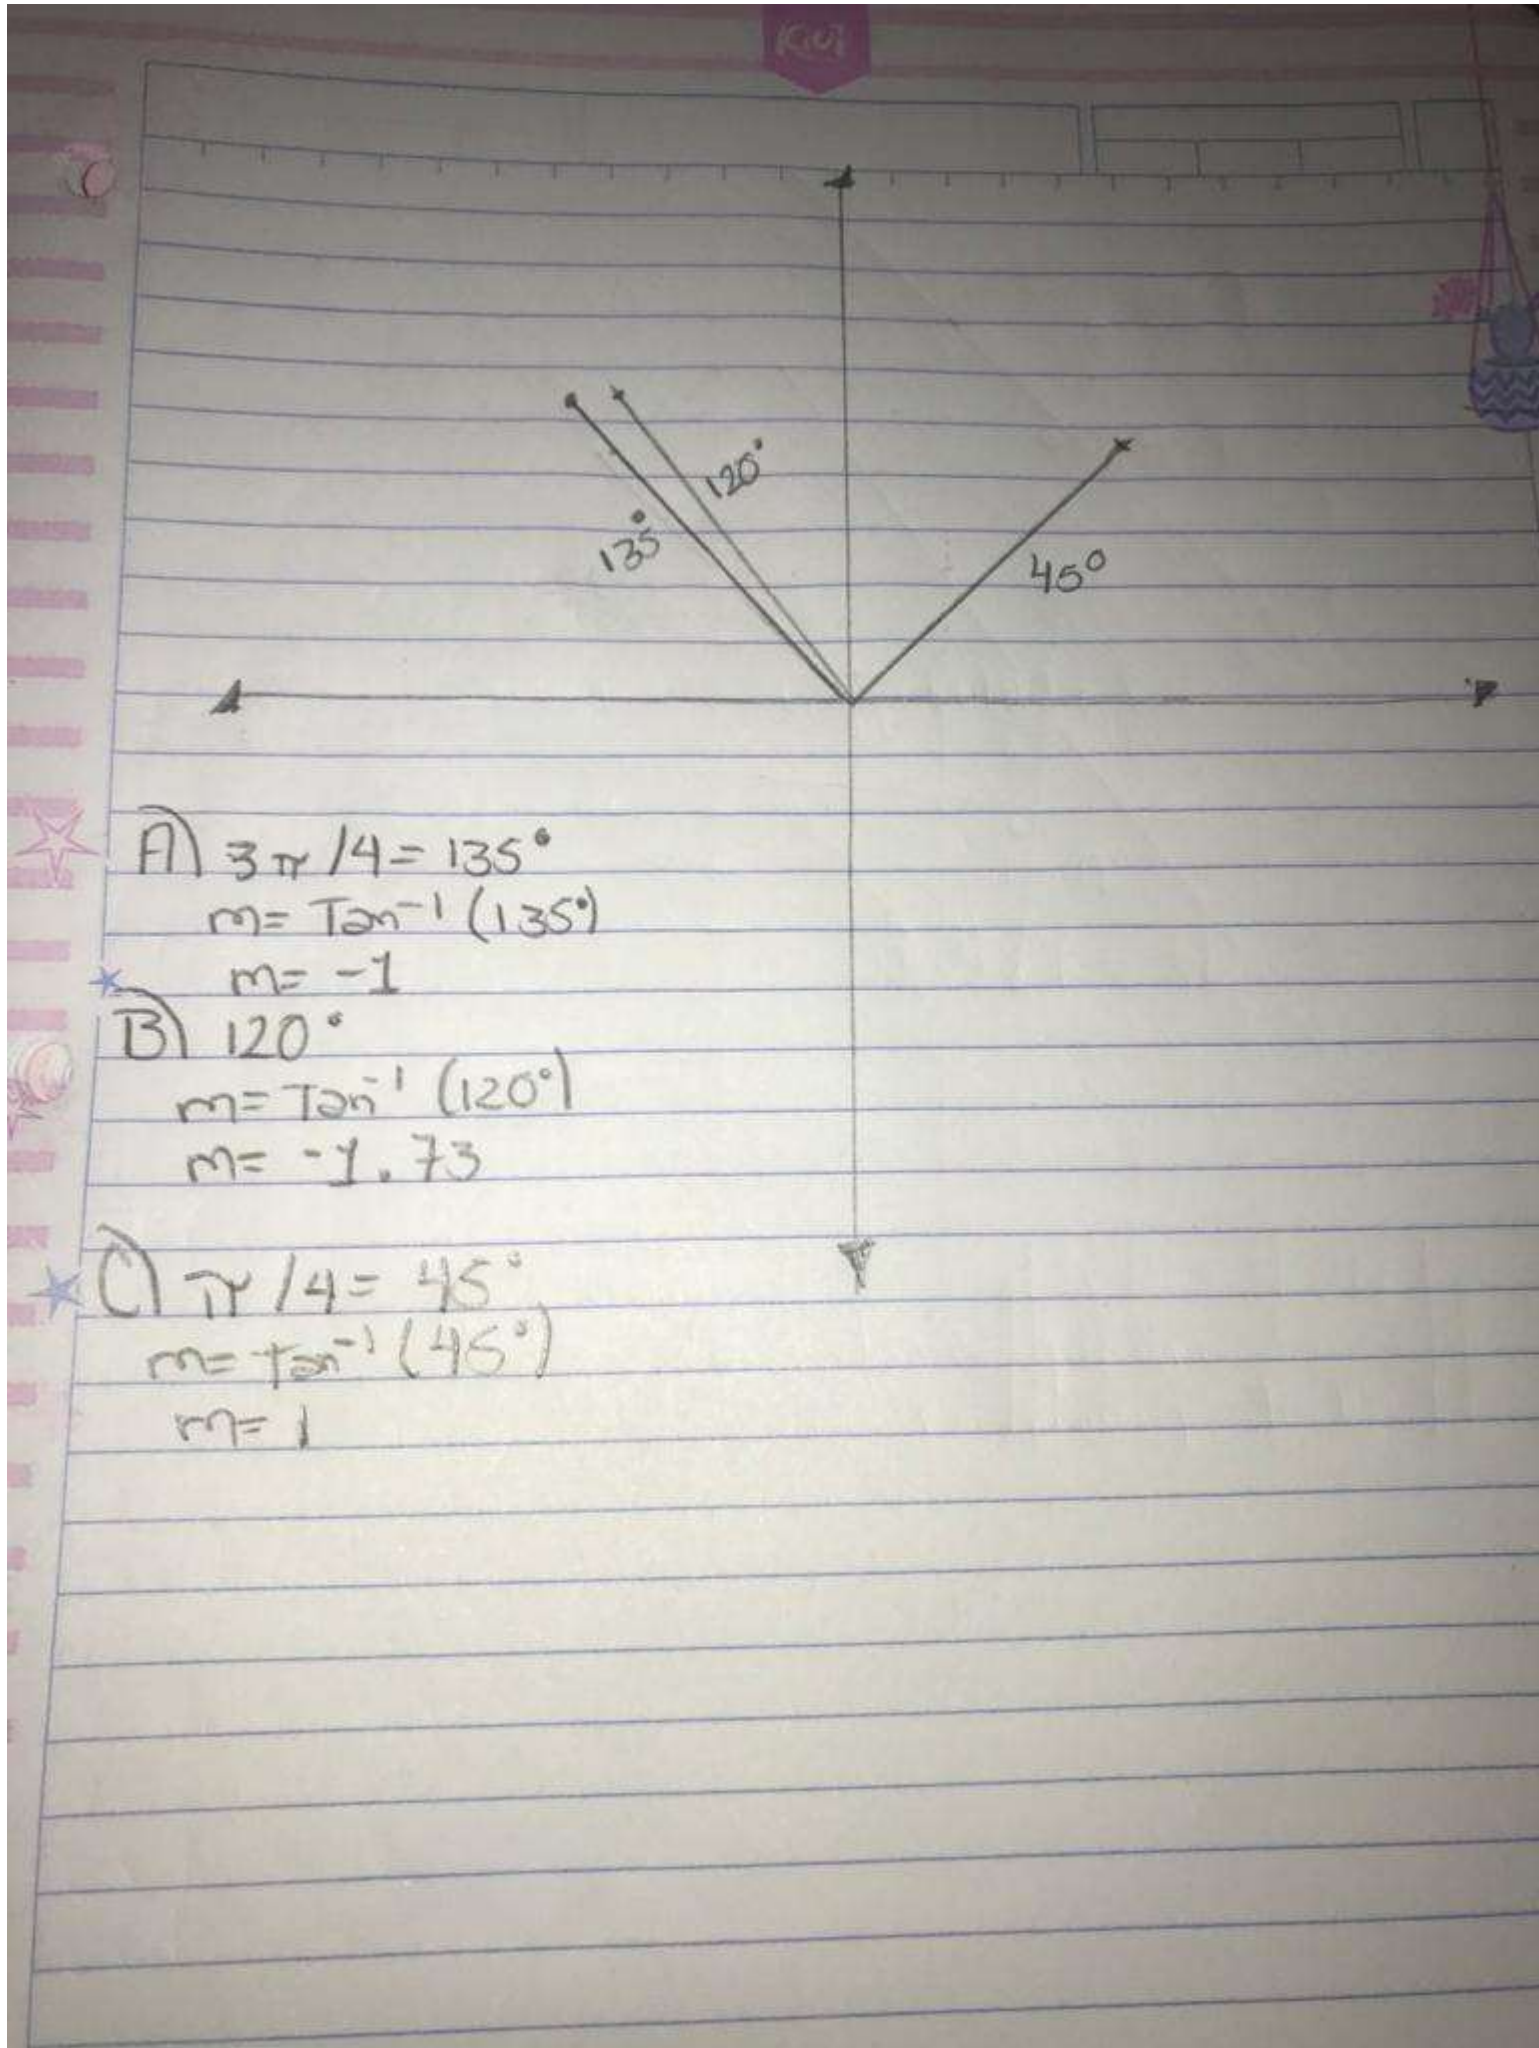 Kiut
120°
135°
45°
A) 3π/4 = 135°
m = Tan⁻¹ (135°)
m = -1
B) 120°
m = Tan⁻¹ (120°)
m = -1.73
C) π/4 = 45°
m = tan⁻¹ (45°)
m = 1